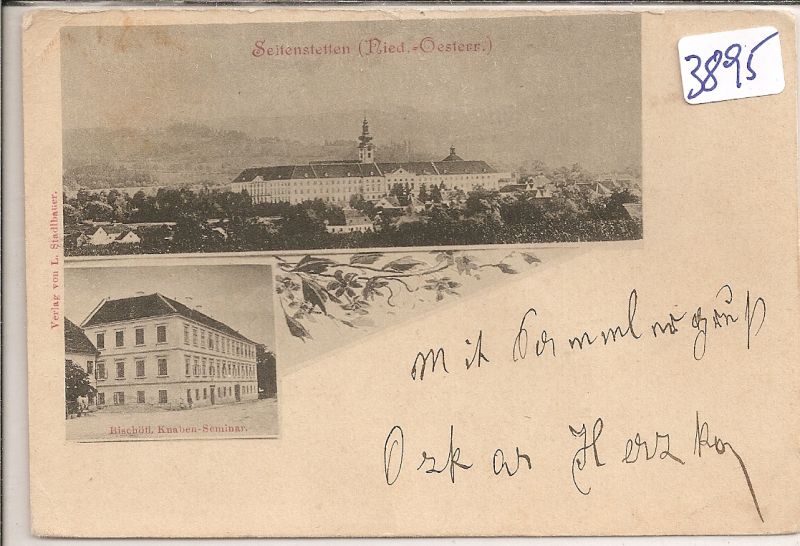 Seitenstetten (Nied.-Oesterr.)
3895
Verlag von L. Stadlbauer.
Bischöfl. Knaben-Seminar.
Mit Sammlergruß
Oskar